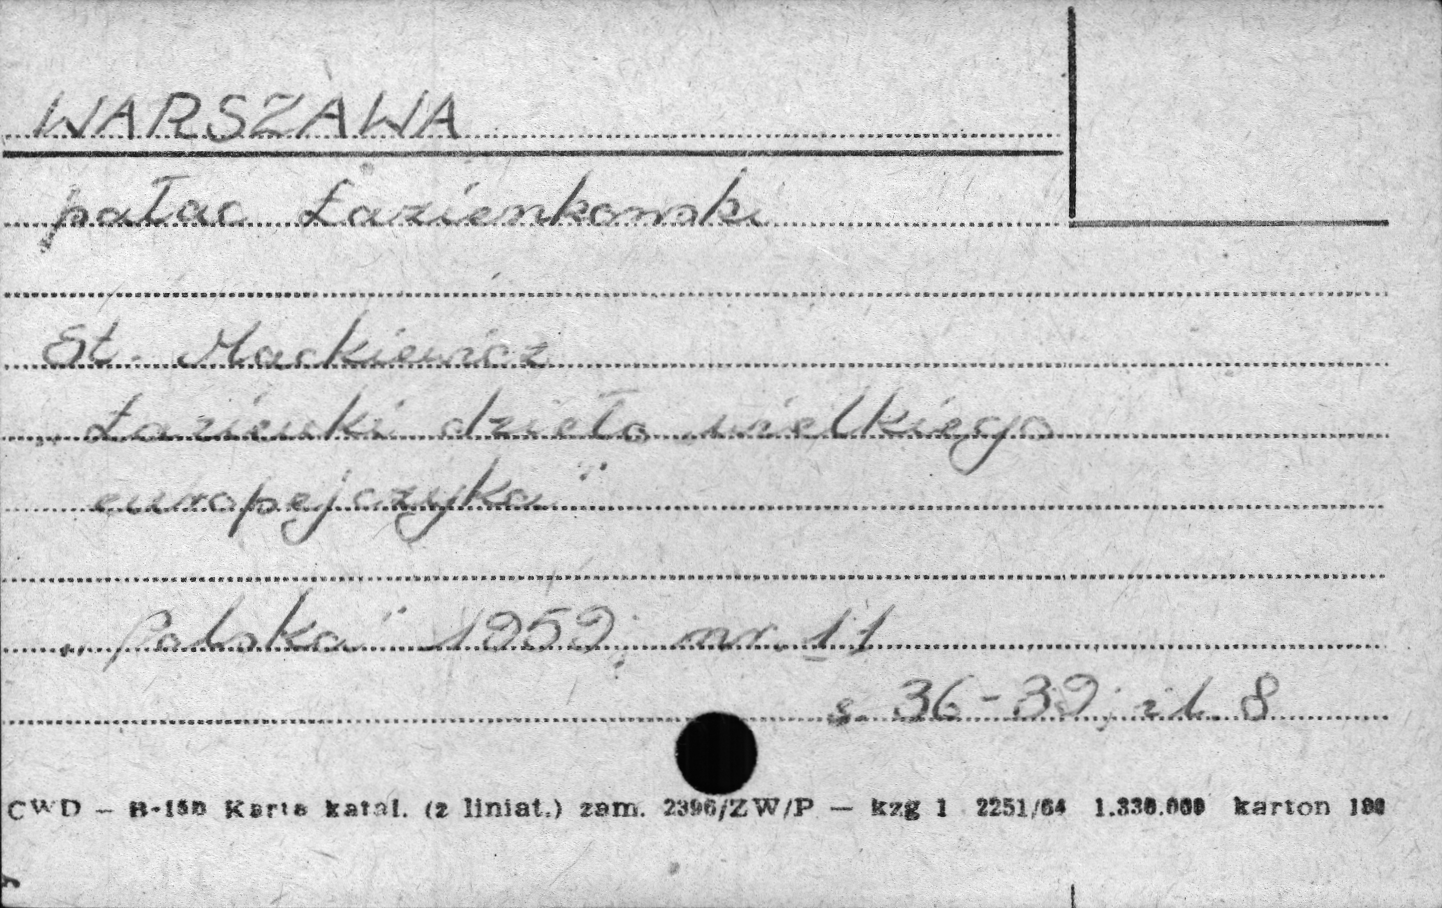 WARSZAWA
pałac Łazienkowski
St. Mackiewicz
„Łazienki dzieło wielkiego
europejczyka"
„Polska" 1959; nr. 11
s. 36-39; il. 8
CWD — B-150 Karta katal. (z liniat.) zam. 2396/ZW/P — kzg 1 2251/64 1.330.000 karton 180